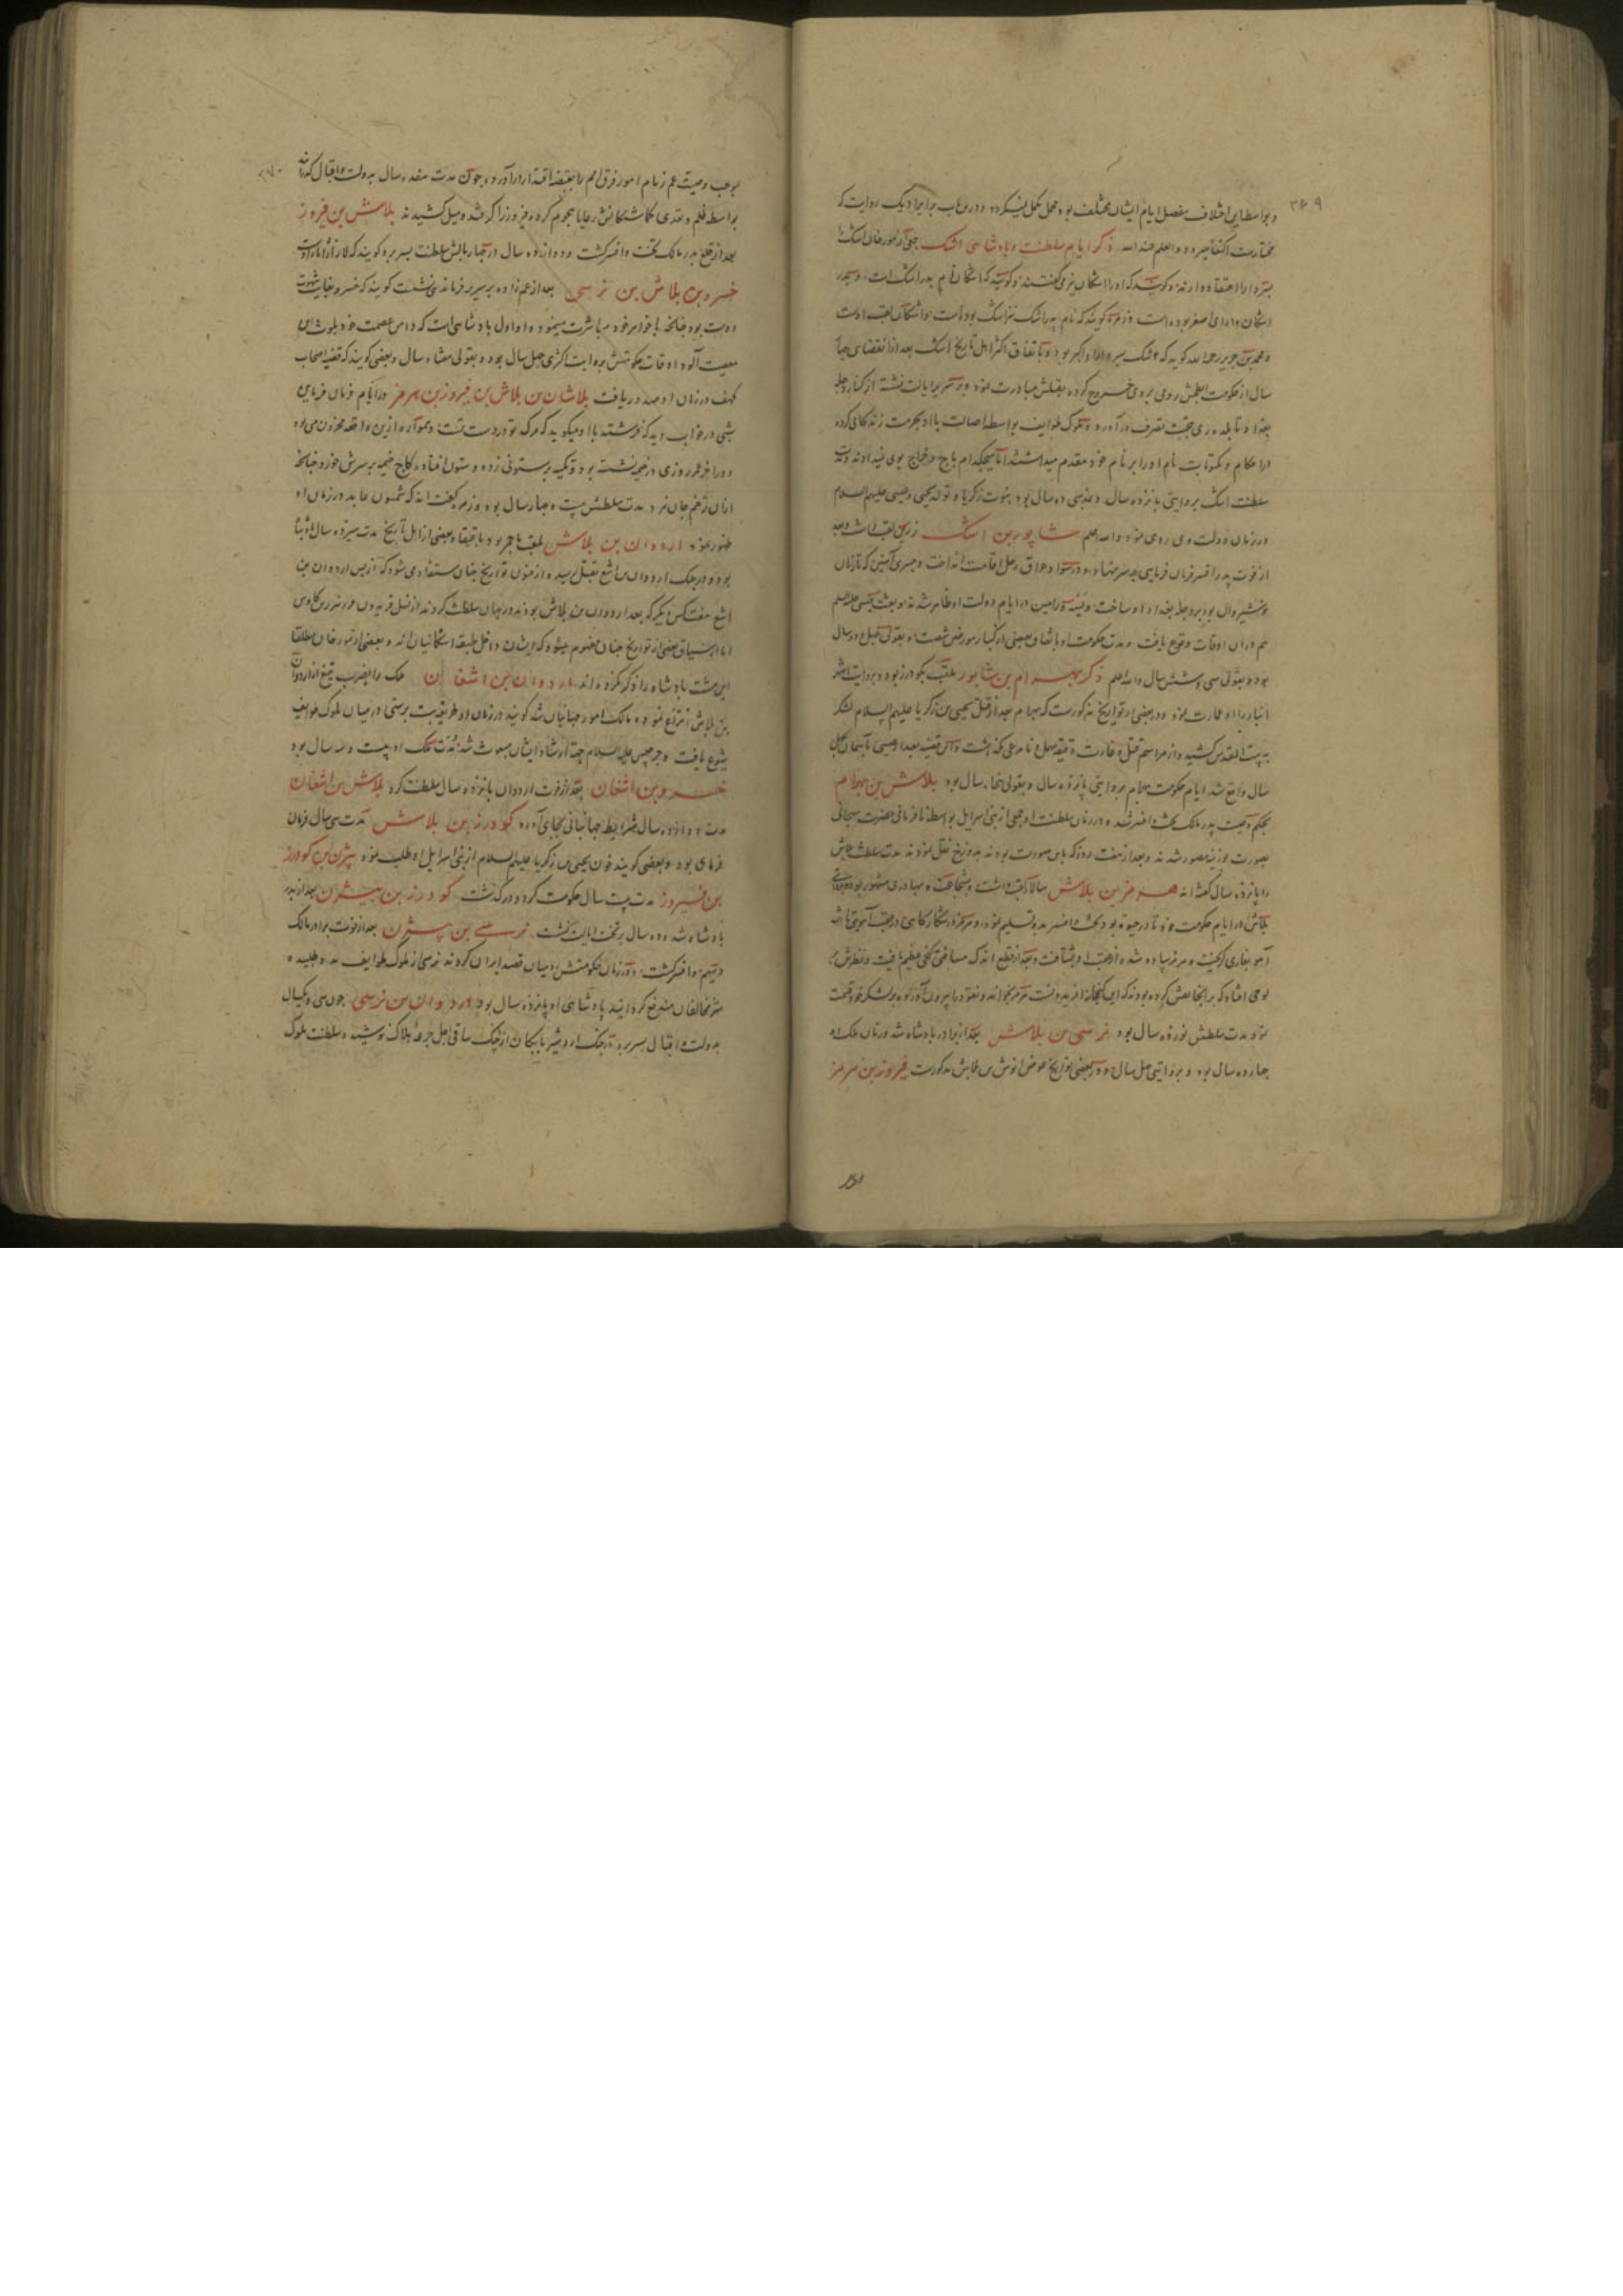 ۳۶۹
و بواسطه این اختلاف مفصل ایام ایشان مختلف بود و درین باب برایراد یک روایت که
مختارست اکتفا میرود و العلم عند الله ذکر ایام سلطنت و پادشاهی اشک جمعی از مورخان اشک را
پسر دارا اعتقاد دارند و گویند که او را اشکان نیز می‌گفتند و گویند که اشکان نام پدر اشک است و پدر
اشکان دارای اصغر بوده است و زمره گویند که نام پدر اشک نیز اشک بوده است و اشکان لقب اوست
و محمد بن جریر رحمه الله گوید که اشک پسر دارا اکبر بود و باتفاق اکثر اهل تاریخ اشک بعد از انقضای
سال از حکومت ابطحش رومی بر وی خروج کرده بقتلش مبادرت نمود و بر سریر ایالت نشسته از کنار دجله
بغداد تا بلده ری بتحت تصرف درآورد و ملوک طوایف بواسطه اصالت با او بحرمت زندگانی کرده
در احکام و مکتوبات نام او را بر نام خود مقدم میداشتند اما هیچکدام باج و خراج بوی نمیدادند و مدت
سلطنت اشک بروایتی پانزده سال و بمذهبی ده سال بود نبوت زکریا و تولد یحیی و عیسی علیهم السلام
در زمان دولت وی روی نمود و الله اعلم شاپور بن اشک زرین لقب داشت و بعد
از فوت پدر افسر فرمان فرمایی بر سر نهاد و در سواد عراق رحل اقامت انداخت و جسری آهنین که تا زمان
نوشیروان بود بر دجله بغداد او ساخت و در ایام دولت او ظاهر شد و بعثت عیسی علیه السلم
هم در آن اوقات وقوع یافت و مدت حکومت او باتفاق بعضی از کبار مورخین شصت و بقولی چهل و دو سال
بود و بقولی سی و شش سال و الله اعلم ذکر بهرام بن شاپور ملقب بگودرز بود و بروایت اشهر
انبار را او عمارت نمود و در بعضی از تواریخ مذکورست که بهرام بعد از قتل یحیی بن زکریا علیهم السلام لشکر
به بیت المقدس کشید و از مراسم قتل و غارت دقیقه مهمل و نامرعی نگذاشت و این قضیه بعد از عیسی بآسمان بچهل
سال واقع شد ایام حکومت بهرام بروایتی پانزده سال و بقولی پنجاه سال بود بلاش بن بهرام
بحکم وصیت پدر مالک تخت و افسر شد و در زمان سلطنت او جمعی از بنی اسرائیل بواسطه نافرمانی حضرت سبحانی
بصورت بوزینه مصور شدند و بعد از هفت روز که باین صورت بودند بدوزخ نقل نمودند مدت سلطنت بلاش
را پانزده سال گفته‌اند هرمز بن بلاش سالار لقب داشت و بشجاعت و بهادری مشهور بود
بلاش در ایام حکومت خود تا در حیوة بود تخت و افسر بدو تسلیم نمود و هرمز در شکارگاهی در عقب آهویی تاخته
آهو بغاری گریخت و هرمز پیاده شده از عقب او بشتافت و بعد از قطع اندک مسافتی گنجی عظیم یافت و نظرش بر
لوحی افتاد که بر آنجا نقش کرده بودند که این گنج از فریدونست هرمز بخواند و نقود را بیرون آورده بر لشکر خود قسمت
نمود مدت سلطنتش نوزده سال بود نرسی بن بلاش بعد از برادر پادشاه شد و زمان ملک او
چهارده سال بود و بروایتی چهل سال و در بعضی تواریخ عوض انوش بن بلاش مذکورست فیروز بن هرمز
۳۷۰
بموجب وصیت عم زمام امور فرق امم را بقبضه اقتدار درآورد و چون مدت هفده سال بدولت و اقبال گذراند
بواسطه ظلم و تعدی گماشتگانش رعایا هجوم کرده فیروز را گرفتند و میل کشیدند بلاش بن فیروز
بعد از خلع پدر مالک تخت و افسر گشت و دوازده سال در چهار بالش سلطنت بسر برد
خسرو بن بلاش بن نرسی بعد از عم‌زاده بر سریر فرماندهی نشست گویند که خسرو بغایت شهوت
دوست بود چنانچه با خواهر خود مباشرت مینمود و او اول پادشاهی است که دامن عصمت خود بلوث این
معصیت آلود اوقات حکومتش بروایت اکثری چهل سال بود و بقولی هفتاد سال و بعضی گویند که قضیه اصحاب
کهف در زمان او صدور یافت بلاشان بن بلاش بن فیروز بن هرمز در ایام فرمان فرمایی
شبی در خواب دید که فرشته با او میگوید که مرگ تو در دست تست و همواره ازین واقعه محزون می‌بود
و در آخر عمر روزی در خیمه نشسته بود و تکیه بر ستونی زده و ستون افتاد و کلاج خیمه بر سرش خورد چنانچه
از آن زخم جان نبرد مدت سلطنتش بیست و چهار سال بود و زمره گفته‌اند که شمسون عابد در زمان او
ظهور نمود اردوان بن بلاش ملقب باحمر بود باتفاق بعضی از اهل تاریخ مدت سیزده سال پادشاه
بود و در جنگ اردوان بن اشغ بقتل رسید و از متون تواریخ چنان مستفاد می‌شود که از پس اردوان بن
اشغ هفت کس دیگر که بعد اردوان بن بلاش بودند در جهان سلطنت کردند از نسل فریدون و فریبرز بن کاوس
اما از سیاق بعضی از تواریخ چنان مفهوم میشود که ایشان داخل طبقه اشکانیان‌اند و بعضی از مورخان مطلقا
این هشت پادشاه را ذکر نکرده‌اند اردوان بن اشغان ملک را بضرب تیغ از اردوان
بن بلاش انتزاع نمود و مالک امور جهانیان شد گویند در زمان او طریقه بت پرستی در میان ملوک طوایف
شیوع یافت و جرجیس علیه السلام جهة ارشاد ایشان مبعوث شد مدت ملک او بیست و سه سال بود
خسرو بن اشغان بعد از فوت اردوان پانزده سال سلطنت کرد بلاش بن اشغان
مدت دوازده سال شرایط جهانبانی بجای آورد گودرز بن بلاش مدت سی سال فرمان
فرمای بود و بعضی گویند خون یحیی بن زکریا علیهم السلام از بنی اسرائیل او طلب نمود بیژن بن گودرز
بن فیروز مدت بیست سال حکومت کرد و درگذشت گودرز بن بیژن بعد از پدر
پادشاه شد و ده سال بر تخت ایالت نشست نرسی بن بیژن بعد از فوت برادر مالک
دیهیم و افسر گشت و در زمان حکومتش رومیان قصد ایران کردند نرسی از ملوک طوایف مدد طلبیده
شر مخالفان مندفع گردانید پادشاهی او پانزده سال بود اردوان بن نرسی چون سی و یکسال
بدولت و اقبال بسر برد در جنگ اردشیر بابکان از چنگ ساقی اجل جرعه هلاک نوشید و سلطنت ملوک